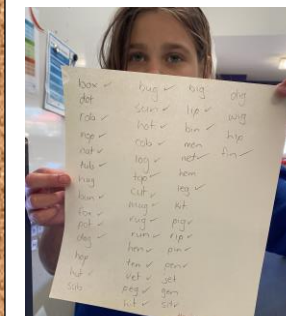 box ✓
dot
rob ✓
mop ✓
nut ✓
tub ✓
hug
bun ✓
fox ✓
pot ✓
dog ✓
hop
hut ✓
bug ✓
sum ✓
hot ✓
cob ✓
log ✓
top ✓
cut ✓
mug ✓
rug ✓
run ✓
hen ✓
ten ✓
vet ✓
peg ✓
hit ✓
big
lip ✓
bin ✓
men
net ✓
hem
leg ✓
kit
pig ✓
rip ✓
pin ✓
pen ✓
yet
gem
dig
wig
hip
fin ✓